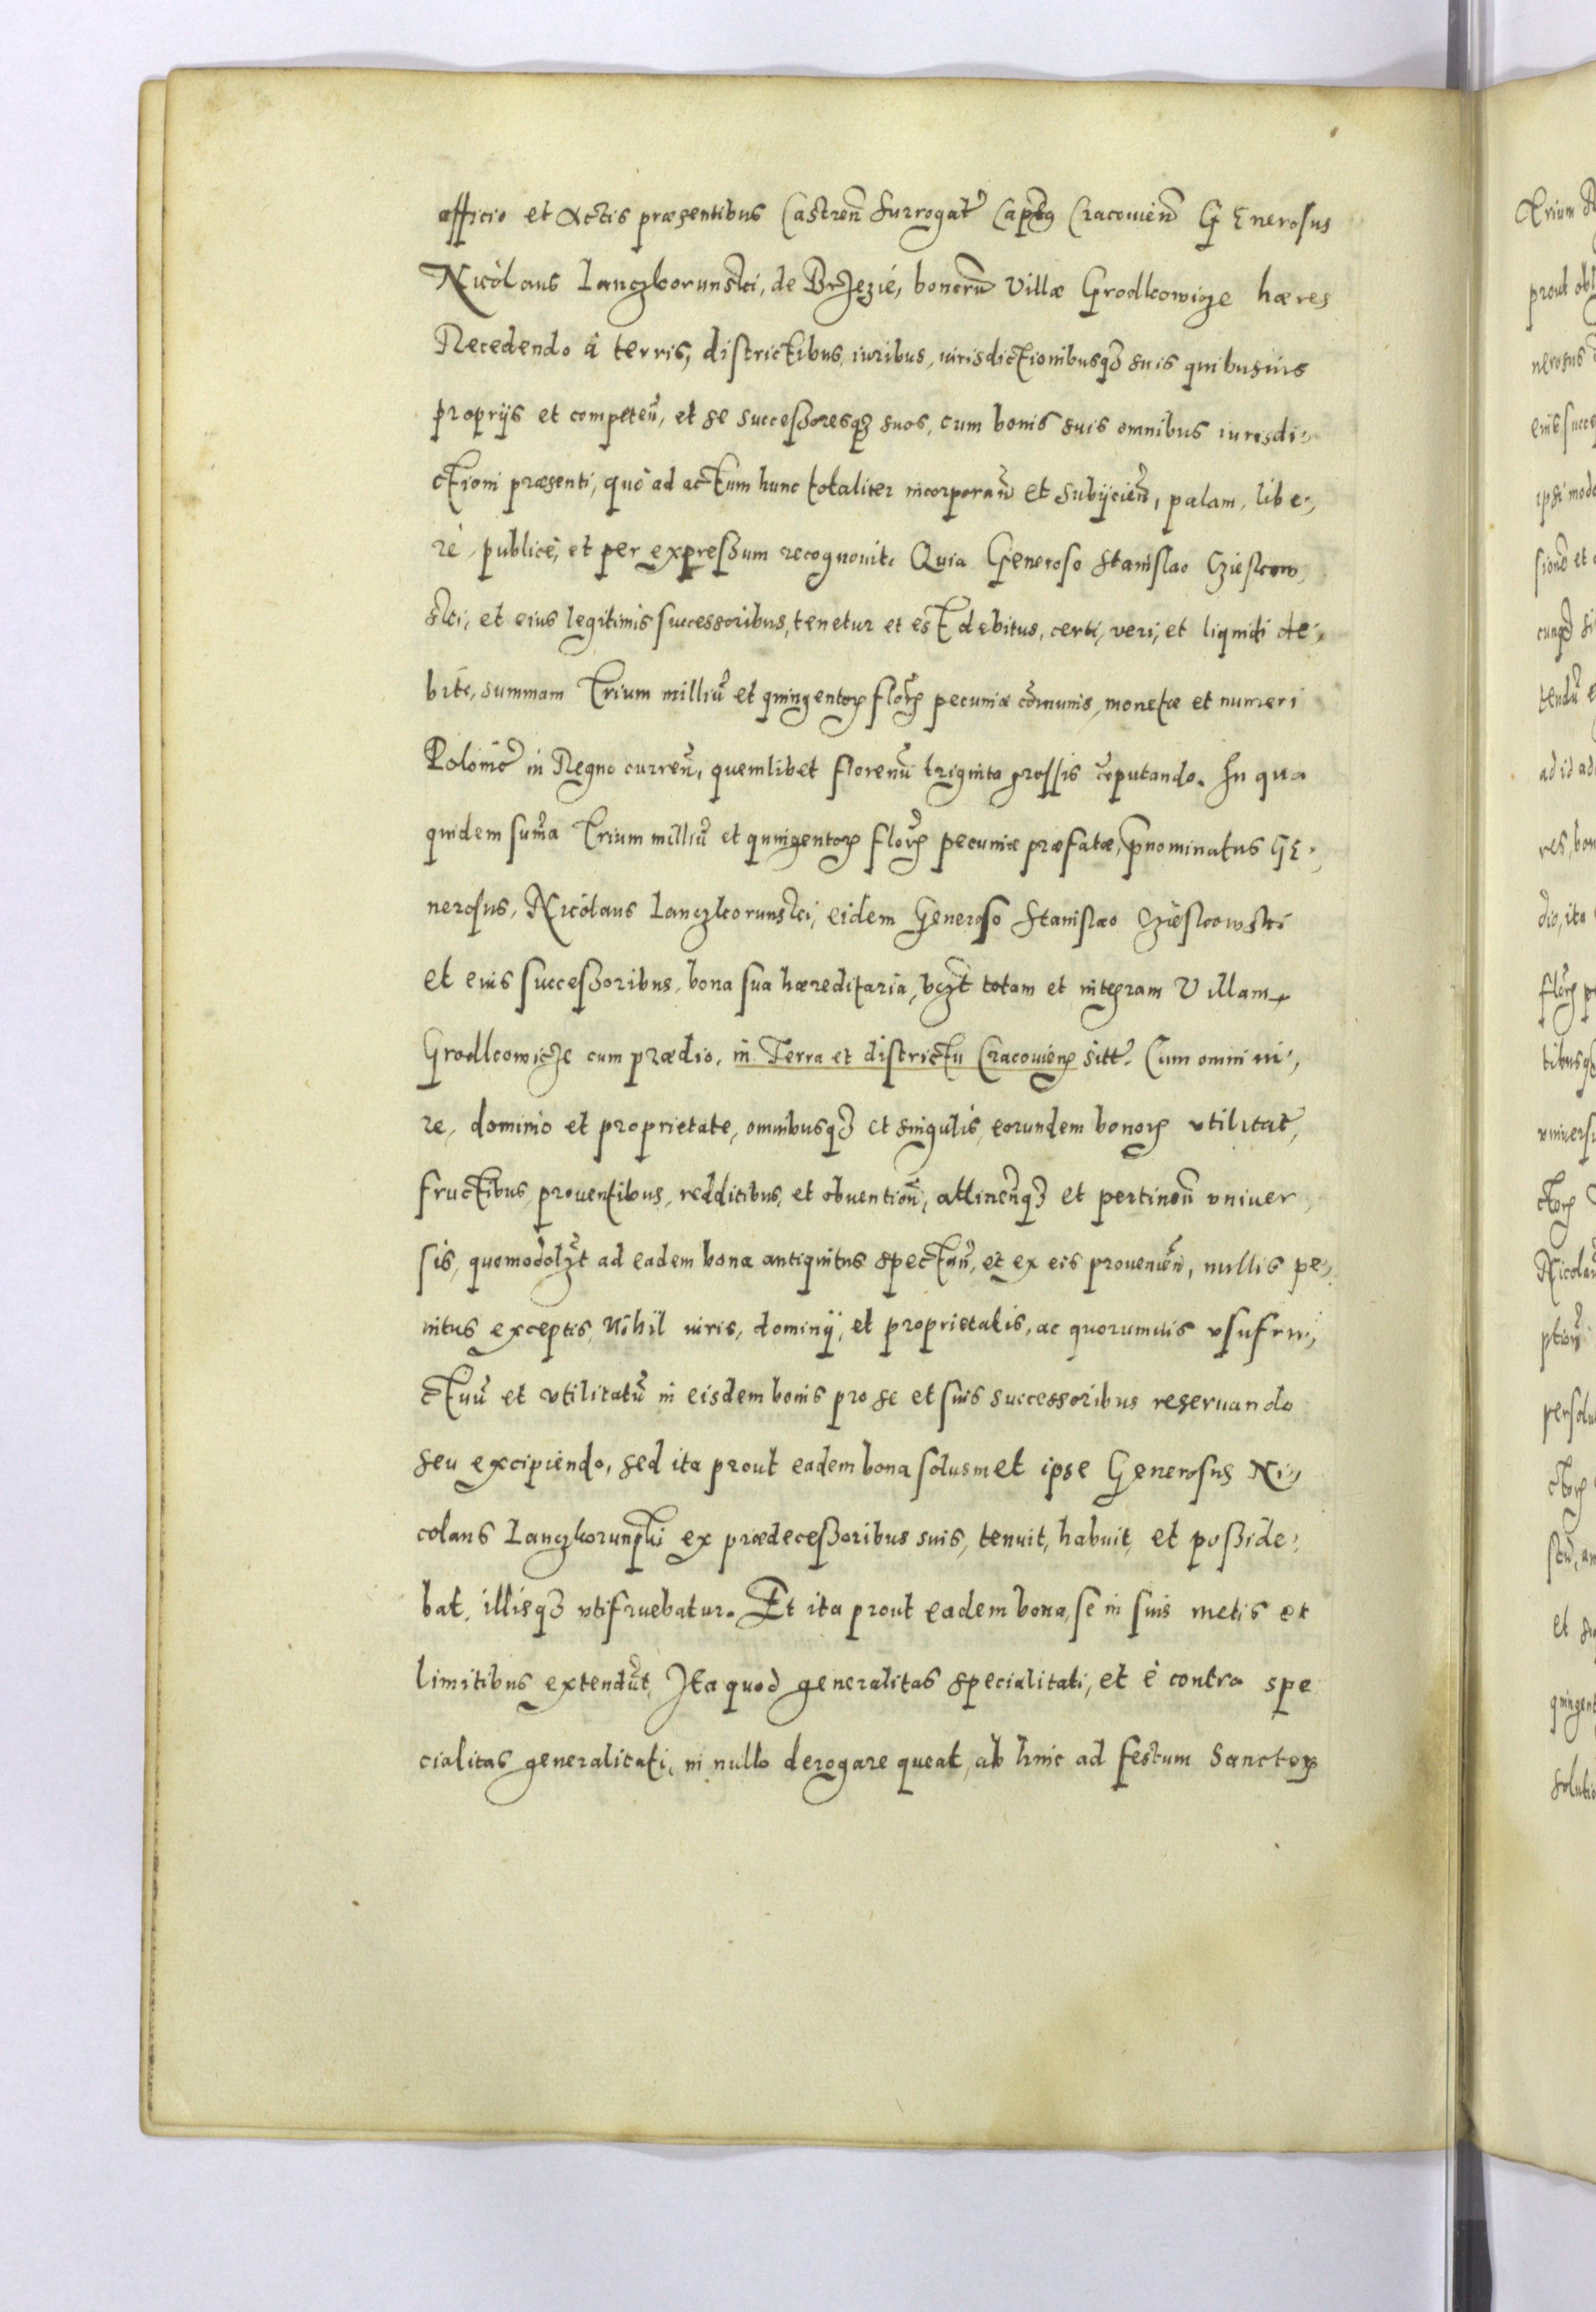 officio et Actis præsentibus Castreñ Surrogat̃ Capt̃q Cracovieñ GEnerosus
Nicòlaus Lanczkorunski, de Brzezié, bonorũ Villæ Grodkowicze hæres
Recedendo à terris, districtibus, iuribus, iurisdictionibusq3 suis quibusuis
proprijs et competeñ, et se successoresq3 suos, cum bonis suis omnibus iurisdi-
ctioni præsenti, quò ad actum hunc totaliter incorporañ et subijcieñ, palam, libe-
rè, publicè, et per expressum recognouit. Quia Generoso Stanislao Czieskow
ski, et eius legitimis successoribus, tenetur et est debitus, certi, veri, et liquidi de-
biti, summam Trium milliũ et quingentoꝝ floꝝ pecuniæ cõmunis, monetæ et numeri
Poloñic in Regno curreñ, quemlibet florenũ triginta grossis cõputando. In qua
quidem sum̃a Trium milliũ et quingentoꝝ floꝝ pecuniæ præfatæ, p̃nominatus GE-
nerosus, Nicòlaus Lanczkorunski, eidem Generoso Stanislao Czieskowski
et eius successoribus, bona sua hæreditaria, vꝫt totam et integram Villam
Grodkowicze cum prædio, in Terra et districtu Cracovieñ sitt. Cum omni iu-
re, dominio et proprietate, omnibusq3 et singulis, eorundem bonoꝝ vtilitat̃,
fructibus, prouentibus, redditibus, et obuentioñ, attineñq3 et pertineñ vniuer
sis, quomodolꝫt ad eadem bona antiquitus spectañ, et ex eis prouenieñ, nullis pe-
nitus exceptis, Nihil iuris, dominij, et proprietatis, ac quorumuis vsufru-
ctuũ et vtilitatũ in eisdem bonis pro se et suis successoribus reseruando
seu excipiendo, sed ita prout eadem bona solusmet ipse Generosus Ni-
colaus Lanczkorunski ex prædecessoribus suis, tenuit, habuit, et posside-
bat, illisq3 vtifruebatur. Et ita prout eadem bona, se in suis metis et
limitibus extendũt, Ita quod generalitas specialitati, et è contra spe
cialitas generalitati, in nullo derogare queat, ab hinc ad festum Sanctoꝝ